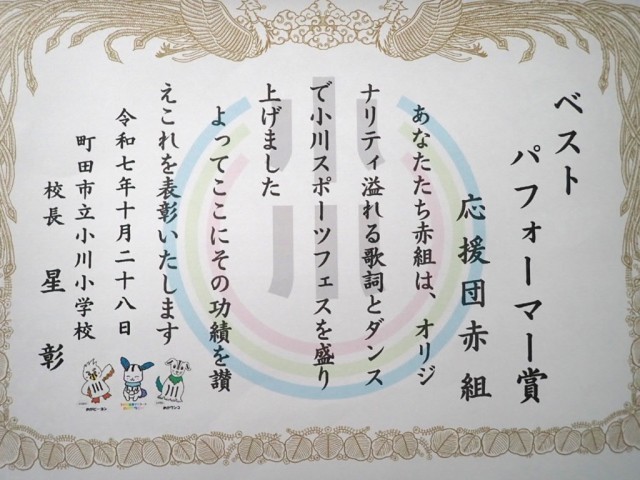 ベスト
パフォーマー賞
応援団赤組
あなたたち赤組は、オリジ
ナリティ溢れる歌詞とダンス
で小川スポーツフェスを盛り
上げました
よってここにその功績を讃
えこれを表彰いたします
令和七年十月二十八日
町田市立小川小学校
校長 星 彰